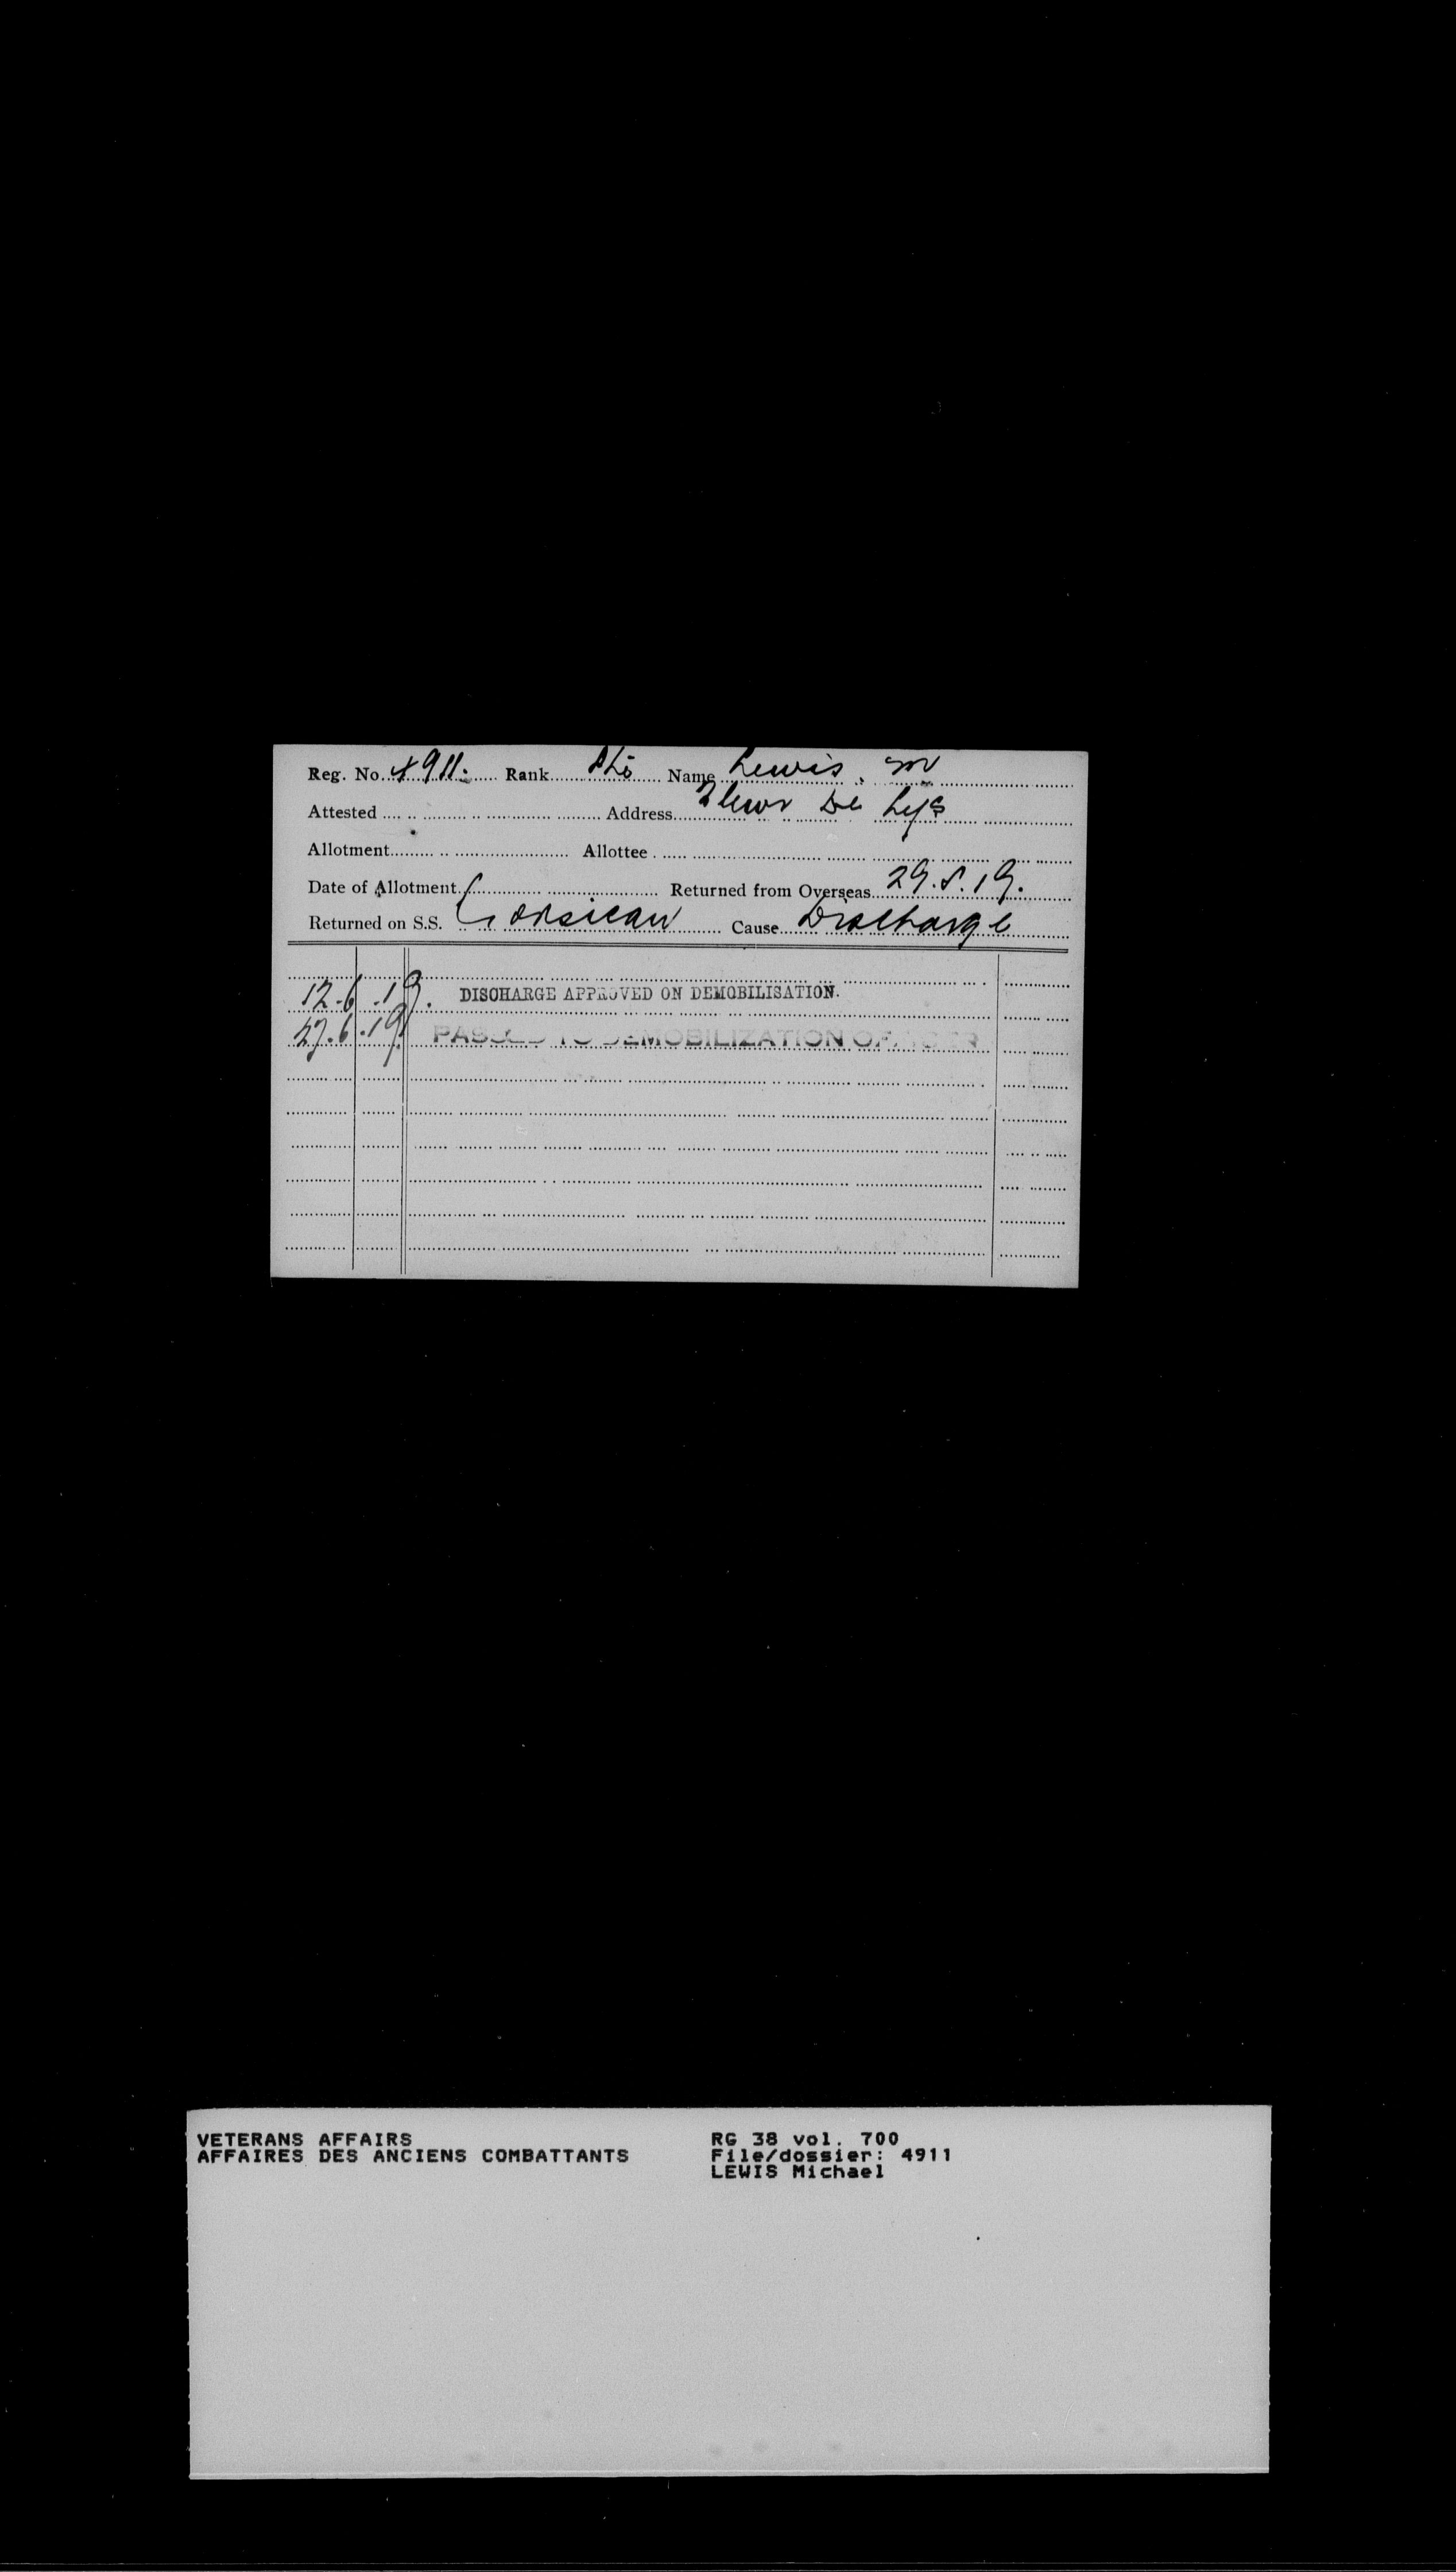 Reg. No. 4911. Rank Pte Name Lewis, M
Attested Address Fleur De Lys
Allotment Allottee
Date of Allotment Returned from Overseas 29.5.19.
Returned on S.S. Corsican Cause Discharge
12.6.19. DISCHARGE APPROVED ON DEMOBILISATION.
27.6.19 PASSED TO DEMOBILIZATION OFFICER
VETERANS AFFAIRS RG 38 vol. 700
AFFAIRES DES ANCIENS COMBATTANTS File/dossier: 4911
LEWIS Michael